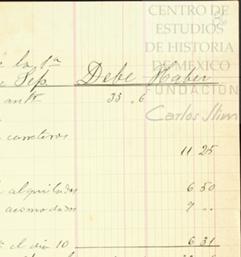 CENTRO DE
ESTUDIOS
DE HISTORIA
DE MÉXICO
FUNDACIÓN
Carlos Slim
de la 1ª
Sep. Debe Haber
ant.r 33 . 6
carreteros
11 25
alquilados 6 50
acomodados 7 --
el dia 10 6 31